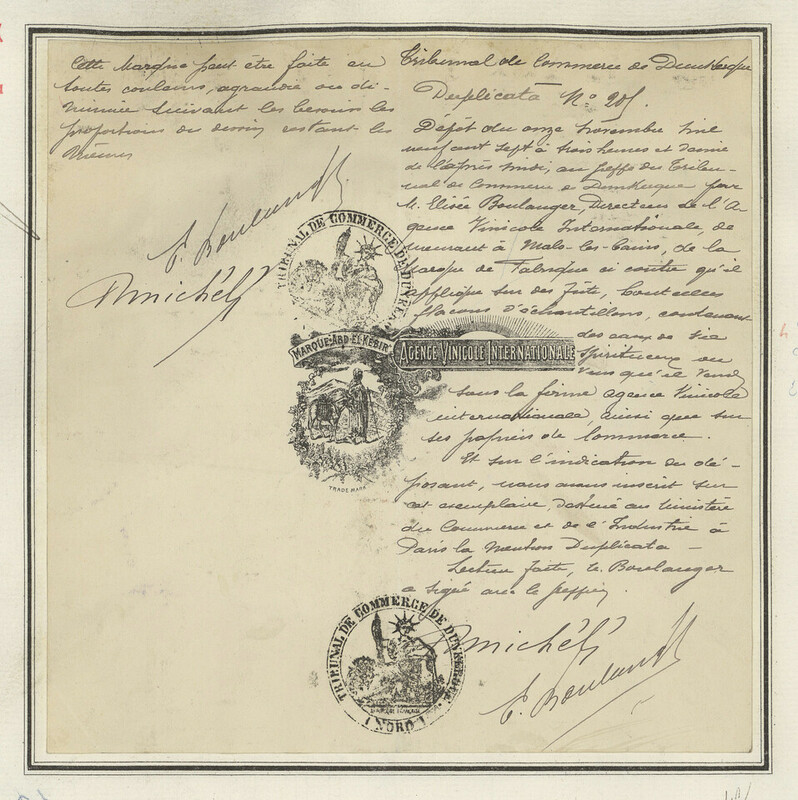 Cette Marque peut être faite en
toutes couleurs, agrandie ou di-
minuée suivant les besoins les
proportions du dessin restant les
mêmes
E. Boulanger
Tribunal de Commerce de Dunkerque
Duplicata N° 205.
Dépôt du onze novembre mil
neuf cent sept à trois heures et demie
de l'après midi, au greffe du Tribu-
nal de Commerce de Dunkerque par
M. Elisée Boulanger, Directeur de l'A-
gence Vinicole Internationale, de
meurant à Malo-les-Bains, de la
marque de Fabrique ci contre qu'il
applique sur des fûts, bouteilles
flacons d'échantillons, contenant
des eaux de vie
spiritueux ou
vins qu'il vend
sous la firme agence Vinicole
internationale, ainsi que sur
ses papiers de Commerce.
Et sur l'indication du dé-
posant, nous avons inscrit sur
cet exemplaire, destiné au Ministère
du Commerce et de l'Industrie à
Paris la mention Duplicata —
Lecture faite, le Boulanger
a signé avec le greffier.
E. Boulanger
TRIBUNAL DE COMMERCE DE DUNKERQUE
MARQUE "ABD-EL-KEBIR"
AGENCE VINICOLE INTERNATIONALE
TRADE MARK
TRIBUNAL DE COMMERCE DE DUNKERQUE
(NORD)